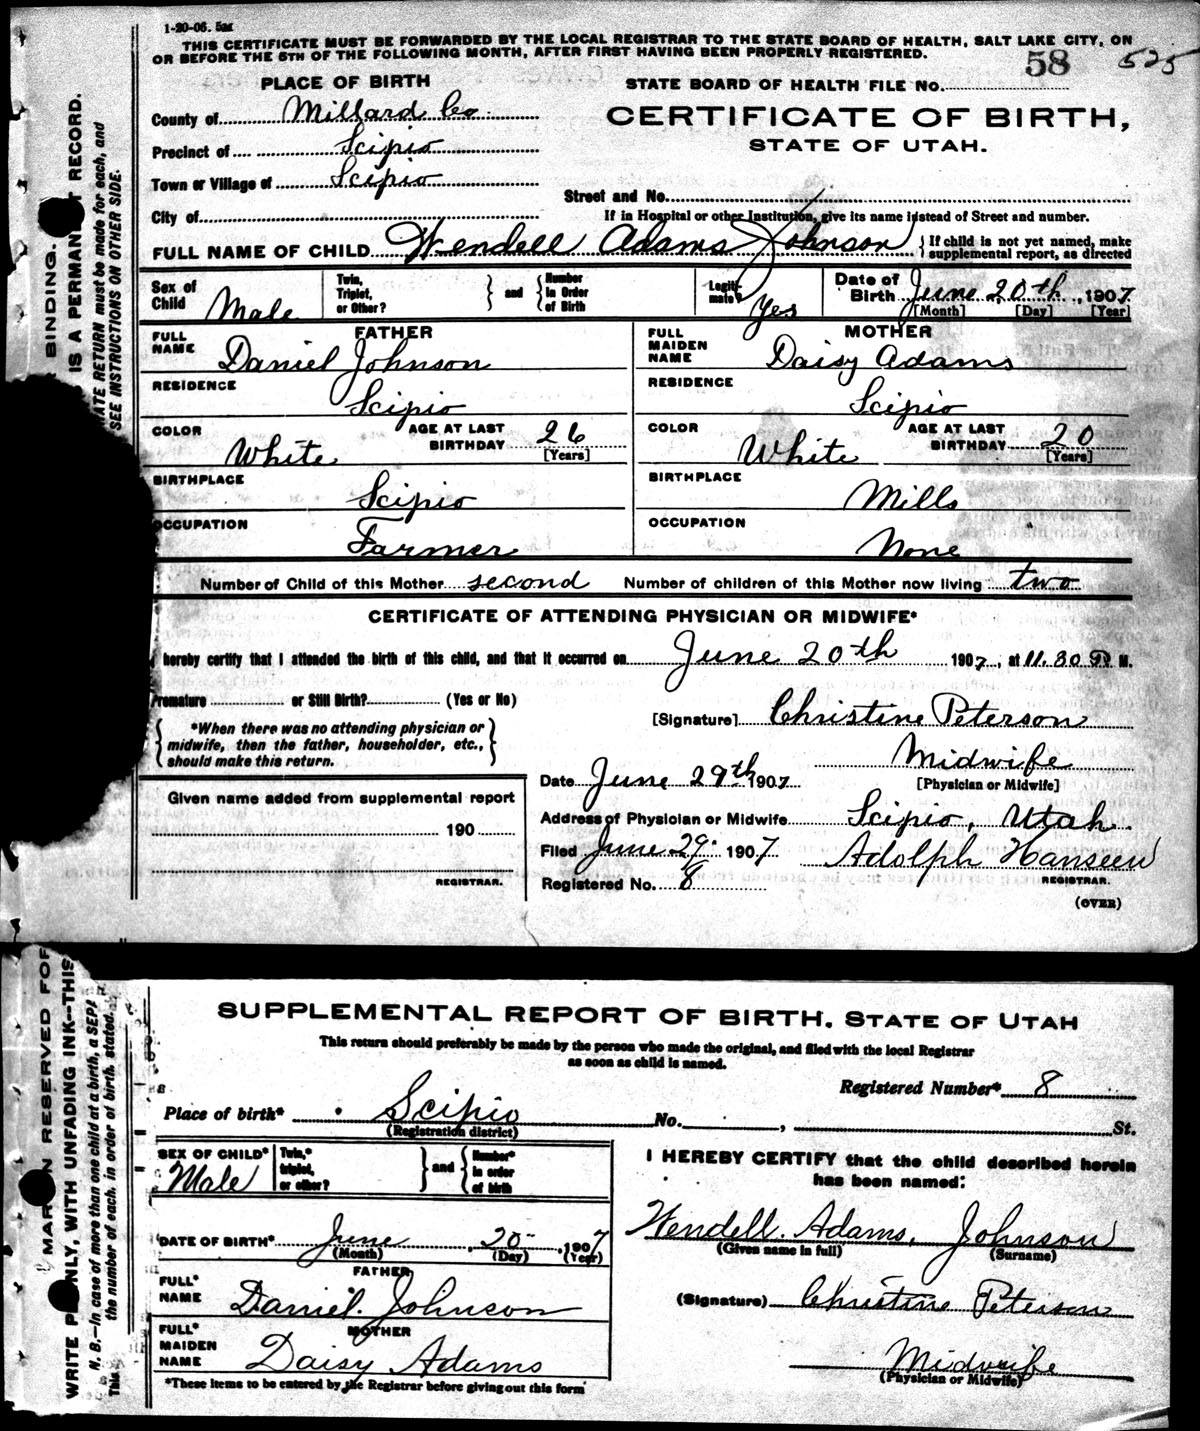 1-20-06. 5M
THIS CERTIFICATE MUST BE FORWARDED BY THE LOCAL REGISTRAR TO THE STATE BOARD OF HEALTH, SALT LAKE CITY, ON
OR BEFORE THE 5TH OF THE FOLLOWING MONTH, AFTER FIRST HAVING BEEN PROPERLY REGISTERED.
58 525
PLACE OF BIRTH
STATE BOARD OF HEALTH FILE No.
County of Millard Co.
CERTIFICATE OF BIRTH,
STATE OF UTAH.
Precinct of Scipio
Town or Village of Scipio
Street and No.
City of
If in Hospital or other Institution, give its name instead of Street and number.
FULL NAME OF CHILD Wendell Adams Johnson { If child is not yet named, make supplemental report, as directed
Sex of Child Male Twin, Triplet, or Other? } and { Number in Order of Birth Legitimate? Yes Date of Birth June 20th, 1907
[Month] [Day] [Year]
FATHER MOTHER
FULL NAME Daniel Johnson FULL MAIDEN NAME Daisy Adams
RESIDENCE Scipio RESIDENCE Scipio
COLOR White AGE AT LAST BIRTHDAY 26 [Years] COLOR White AGE AT LAST BIRTHDAY 20 [Years]
BIRTHPLACE Scipio BIRTHPLACE Mills
OCCUPATION Farmer OCCUPATION None
Number of Child of this Mother second Number of children of this Mother now living two
CERTIFICATE OF ATTENDING PHYSICIAN OR MIDWIFE*
hereby certify that I attended the birth of this child, and that it occurred on June 20th 1907, at 11.30 P. M.
Premature or Still Birth? (Yes or No)
[Signature] Christine Peterson
{ *When there was no attending physician or
midwife, then the father, householder, etc.,
should make this return. }
Midwife
[Physician or Midwife]
Date June 29th 1907
Given name added from supplemental report
190
REGISTRAR.
Address of Physician or Midwife Scipio, Utah.
Filed June 29. 1907 Adolph Hanseen
REGISTRAR.
Registered No. 8
(OVER)
BINDING.
IS A PERMANENT RECORD.
RATE RETURN must be made for each, and
SEE INSTRUCTIONS ON OTHER SIDE.
SUPPLEMENTAL REPORT OF BIRTH, STATE OF UTAH
This return should preferably be made by the person who made the original, and filed with the local Registrar
as soon as child is named.
Registered Number* 8
Place of birth* Scipio No. , St.
(Registration district)
SEX OF CHILD* Male Twin,* triplet, or other? } and { Number* in order of birth
I HEREBY CERTIFY that the child described herein
has been named:
Wendell. Adams. Johnson
(Given name in full) (Surname)
DATE OF BIRTH* June, 20, 1907
(Month) (Day) (Year)
FATHER
FULL* NAME Daniel. Johnson
(Signature) Christine Peterson
MOTHER
FULL* MAIDEN NAME Daisy Adams
Midwife
(Physician or Midwife)
*These items to be entered by the Registrar before giving out this form
MARGIN RESERVED FOR
WRITE PLAINLY, WITH UNFADING INK—THIS
N. B.—In case of more than one child at a birth, a SEPA
the number of each, in order of birth, stated.
This